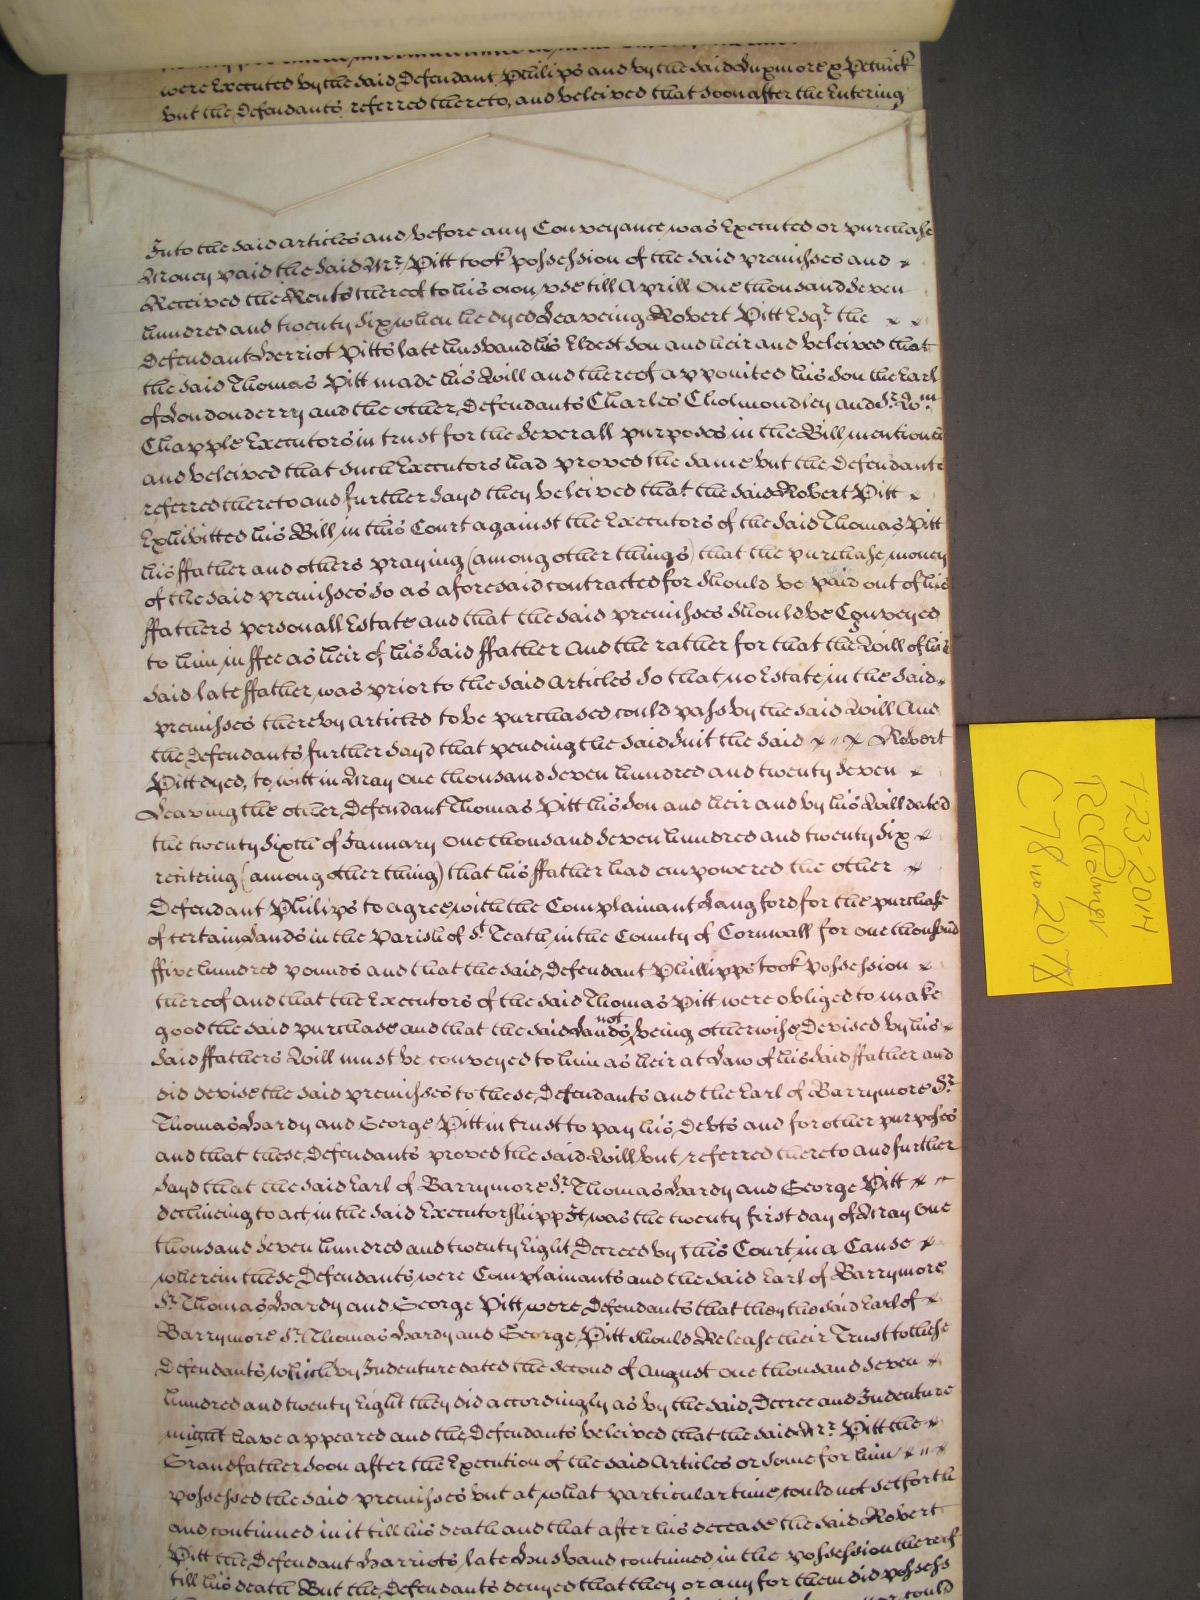 were Executed by the said Defendant Philips and by the said Luxmore & Petnick
but the Defendants referred thereto, and beleived that soon after the Entering
Into the said Articles and before any Conveyance was Executed or purchase
Money paid the said Mr. Pitt took possession of the said premisses and
Received the Rents thereof to his own use till Aprill One thousand Seven
hundred and twenty Six when he dyed Leaveing Robert Pitt Esqr. the
Defendant Herriot Pitts late husband his Eldest Son and heir and beleived that
the said Thomas Pitt made his Will and thereof appointed his Son the Earl
of Londonderry and the other Defendants Charles Cholmondley and Sr. Wm.
Chapple Executors in trust for the severall purposes in the Bill mentioned
and beleived that such Executors had proved the same but the Defendants
referred thereto and further sayd they beleived that the said Robert Pitt
Exhibitted his Bill in this Court against the Executors of the said Thomas Pitt
his ffather and others praying (among other things) that the purchase money
of the said premisses so as aforesaid contracted for should be paid out of his
ffathers personall Estate and that the said premisses should be Conveyed
to him in ffee as heir of his said ffather And the rather for that the Will of his
said late ffather was prior to the said Articles So that no Estate in the said
premisses thereby articled to be purchased could pass by the said Will And
the Defendants further sayd that pending the said Suit the said Robert
Pitt dyed, to witt in May One thousand Seven hundred and twenty Seven
Leaving the other Defendant Thomas Pitt his Son and heir and by his Will dated
the twenty Sixth of January One thousand Seven hundred and twenty Six
reciteing (among other thing) that his ffather had empowered the other
Defendant Philips to agree with the Complainant Langford for the purchase
of certain Lands in the Parish of St. Teath in the County of Cornwall for one thousand
ffive hundred pounds and that the said Defendant Phillipps took possession
thereof and that the Executors of the said Thomas Pitt were obliged to make
good the said purchase and that the said Lands not being otherwise Devised by his
said ffathers Will must be conveyed to him as heir at Law of his said ffather and
did devise the said premisses to these Defendants and the Earl of Barrymore Sr.
Thomas Hardy and George Pitt in trust to pay his Debts and for other purposes
and that these Defendants proved the said Will but referred thereto and further
sayd that the said Earl of Barrymore Sr. Thomas Hardy and George Pitt
declineing to act in the said Executorshipp It was the twenty first day of May One
thousand Seven hundred and twenty Eight Decreed by this Court in a Cause
wherein these Defendants were Complainants and the said Earl of Barrymore
Sr. Thomas Hardy and George Pitt were Defendants that they the said Earl of
Barrymore Sr. Thomas Hardy and George Pitt should Release their Trust to these
Defendants which by Indenture dated the second of August One thousand Seven
hundred and twenty Eight they did accordingly as by the said Decree and Indenture
might have appeared and the Defendants beleived that the said Mr. Pitt the
Grandfather soon after the Execution of the said Articles or some for him
possessed the said premisses but at what particular time could not sett forth
and continued in it till his death and that after his decease the said Robert
Pitt the Defendant Harriots late Husband continued in the possession thereof
till his death But the Defendants denyed that they or any for them did possess
could
7-23-2014
RCPalmer
C 78 no 2077